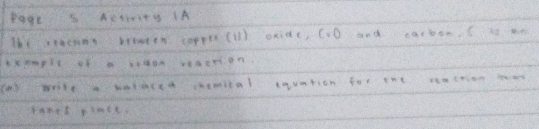 Page 5 Activity 1A
The reaction between copper (II) oxide, CuO and carbon, C is an
example of a redox reaction.
(a) Write a balanced chemical equation for the reaction that
takes place.